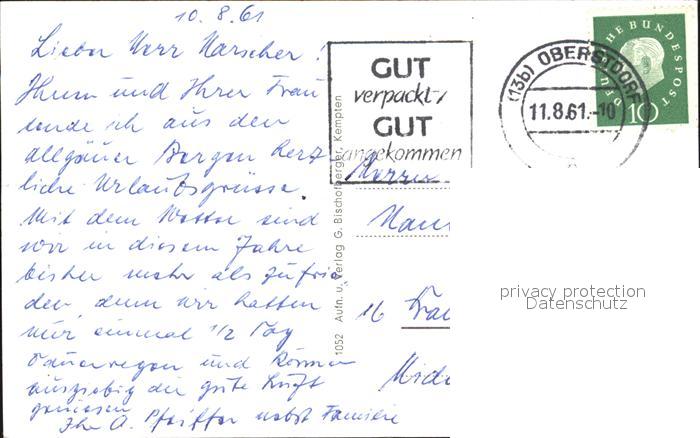 10.8.61
Lieber Herr Marscher!
Ihnen und Ihrer Frau
sende ich aus den
allgäuer Bergen herz-
liche Urlaubsgrüsse.
Mit dem Wetter sind
wir in diesem Jahre
bisher mehr als zufrie
den, denn wir hatten
nur einmal 1/2 Tag
Dauerregen und können
ausgiebig die gute Luft
geniesen
Ihr A. Pfeiffer nebst Familie
1052 Aufn. u. Verlag G. Bischofberger, Kempten
GUT
verpackt,
GUT
angekommen
(13b) OBERSTDORF
11.8.61.-10
DEUTSCHE BUNDESPOST
10
Herrn
16
privacy protection
Datenschutz